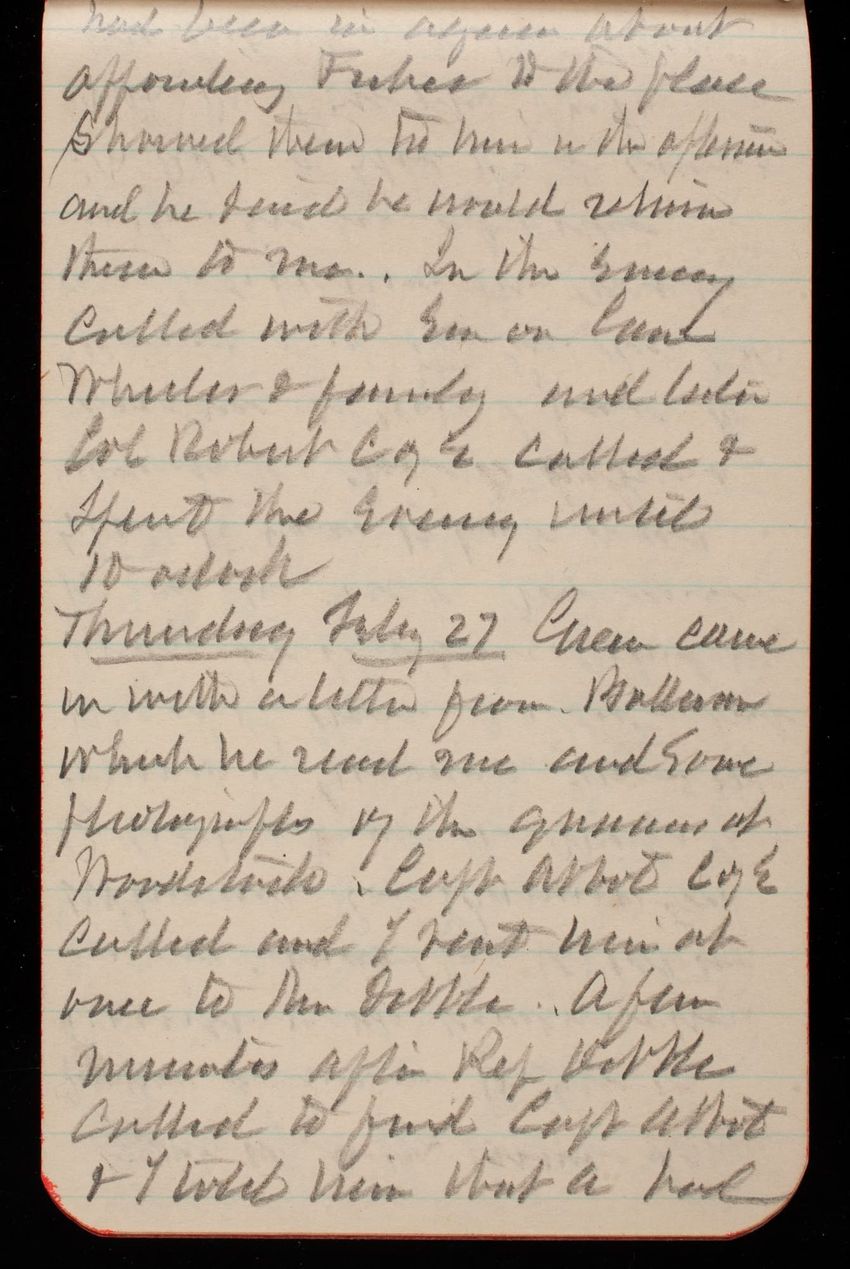 had been in again about
appointing Fisher to the place
Showed them to him in the afternoon
and he said he would return
them to me.. In the Evening
called with Em on
Wheeler & family and later
Col Robert C of E called &
Spent the Evening until
10 oclock
Thursday July 27 Green came
in with a letter from
which he read me and Some
photographs of the at
Woodstock. Capt Abbot C of E
called and I sent him at
once to Rep Tuttle. A few
minutes after Rep Tuttle
called to find Capt Abbot
& I told him that a had